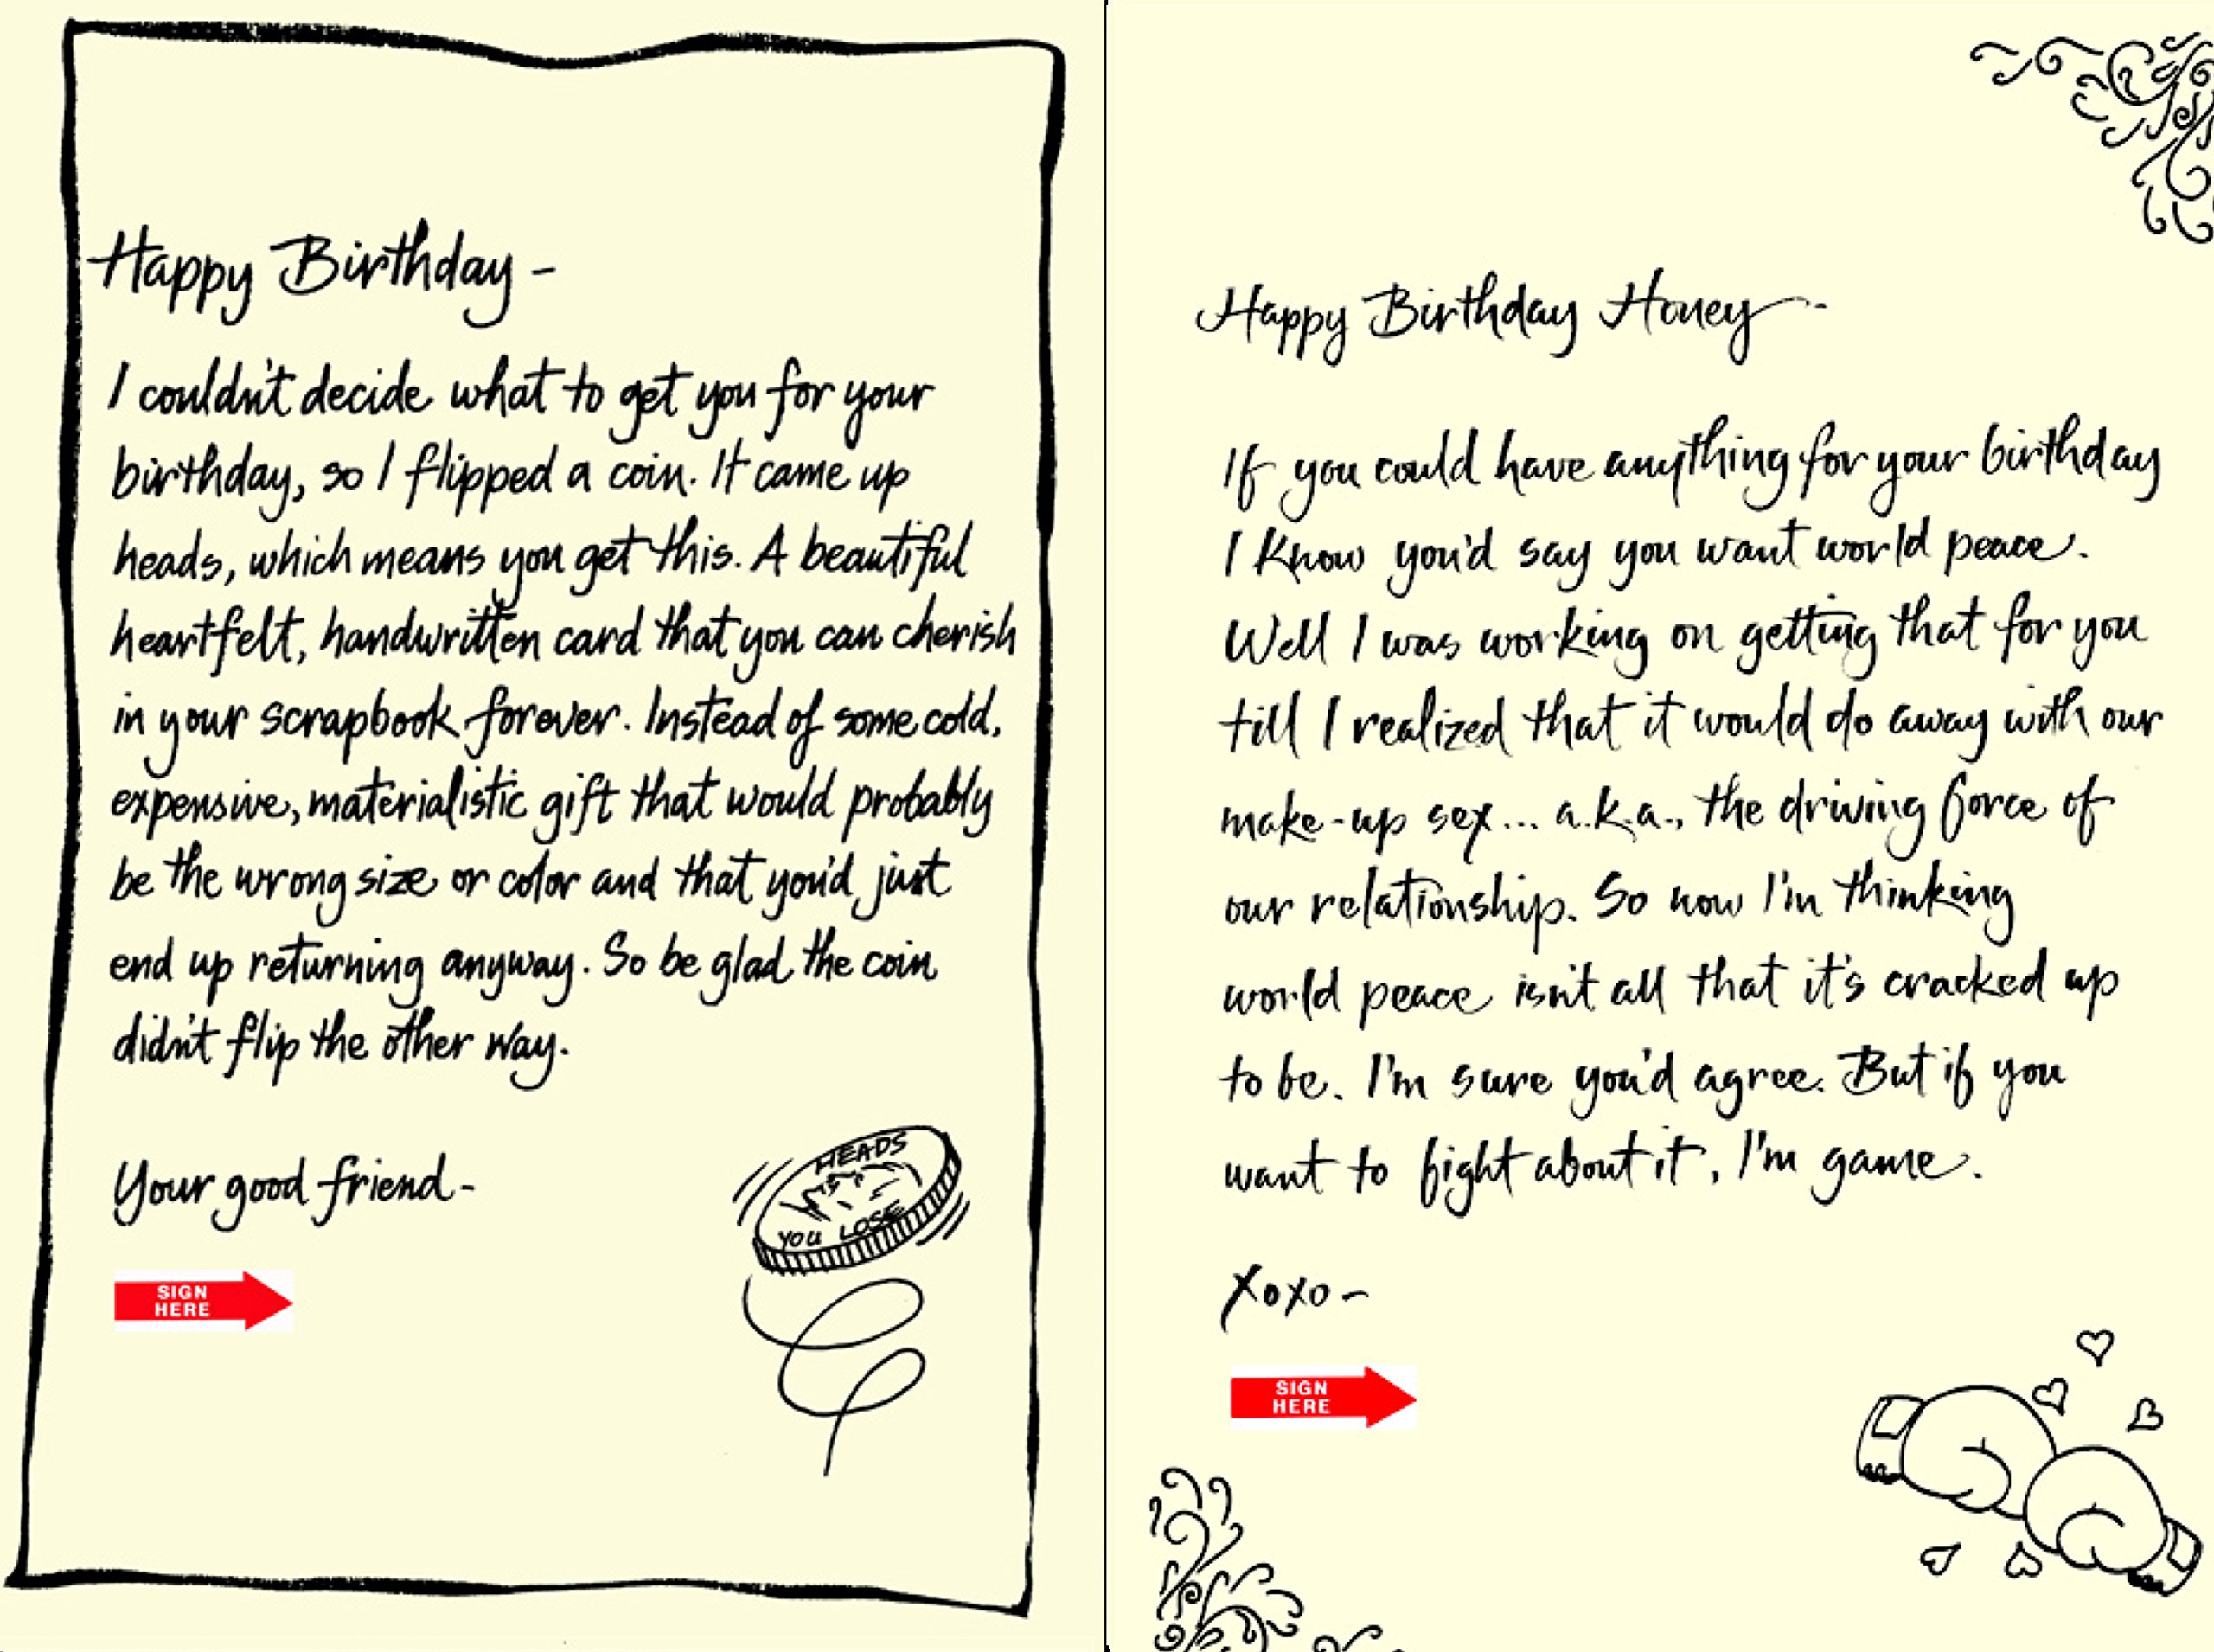 Happy Birthday -
I couldn't decide what to get you for your
birthday, so I flipped a coin. It came up
heads, which means you get this. A beautiful
heartfelt, handwritten card that you can cherish
in your scrapbook forever. Instead of some cold,
expensive, materialistic gift that would probably
be the wrong size or color and that you'd just
end up returning anyway. So be glad the coin
didn't flip the other way.
Your good friend -
HEADS
YOU LOSE
SIGN
HERE
Happy Birthday Honey -
If you could have anything for your birthday
I know you'd say you want world peace.
Well I was working on getting that for you
till I realized that it would do away with our
make-up sex... a.k.a., the driving force of
our relationship. So now I'm thinking
world peace isn't all that it's cracked up
to be. I'm sure you'd agree. But if you
want to fight about it, I'm game.
XOXO -
SIGN
HERE